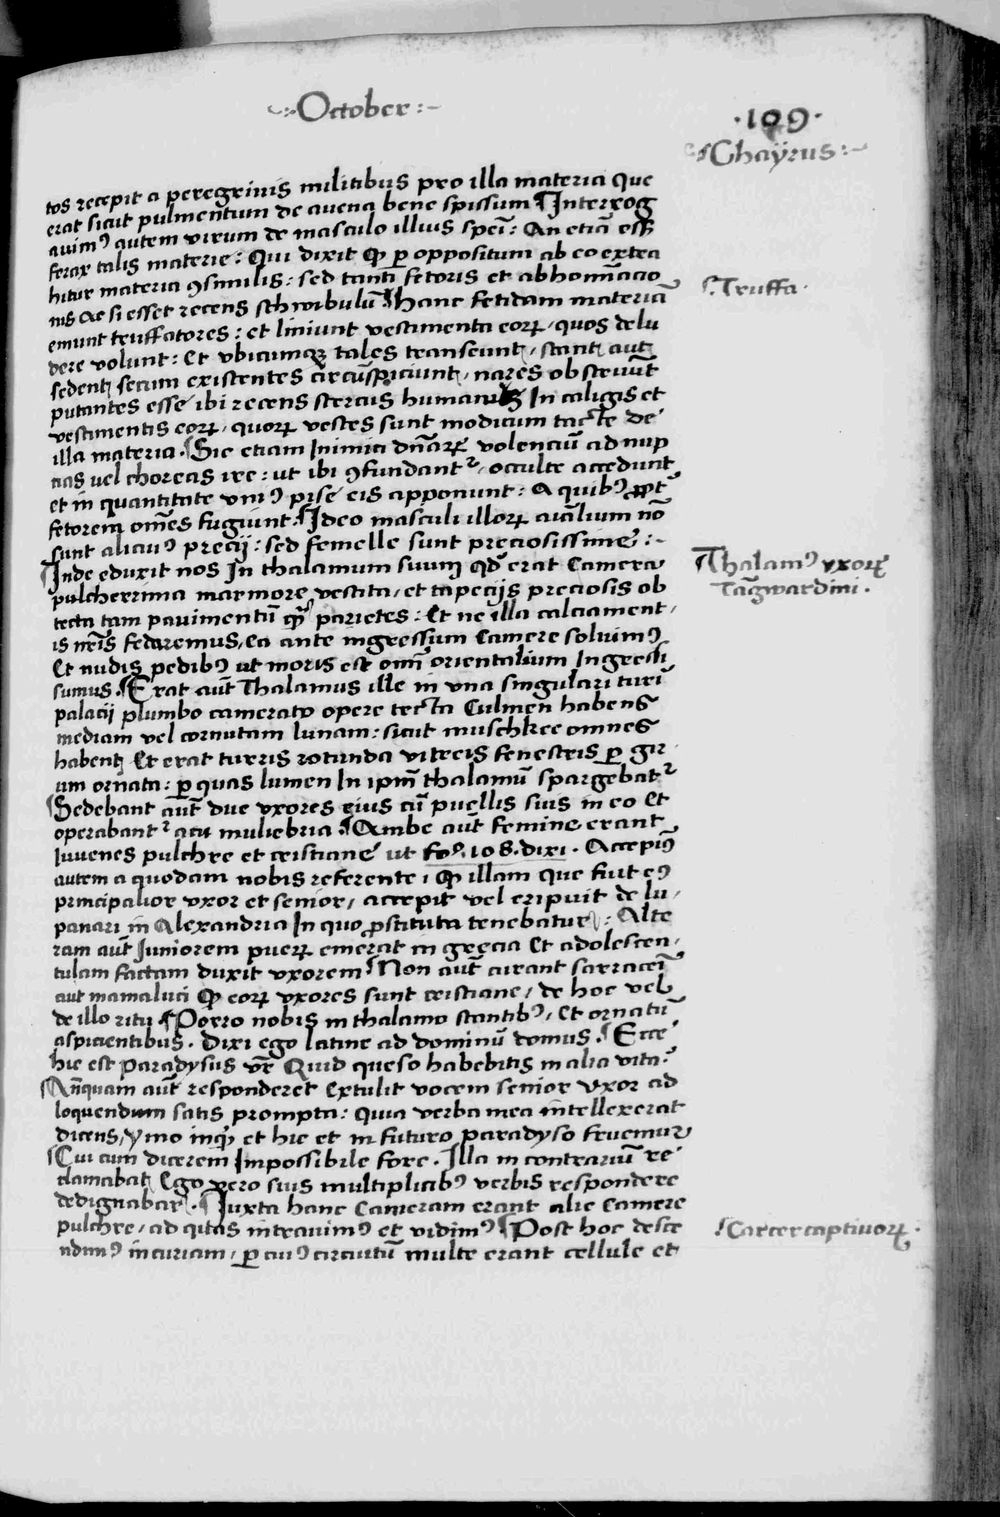 October
·109·
Chaÿrus
tos recepit a peregrinis militibus pro illa materia Que
erat sicut pulmentum de auena bene spissum ¶Interrog
auimꝰ autem virum de masculo illius speīi: An etiā ess̄
ferax talis materie: Qui dixit ꝙ ꝑ oppositum ab eo extra
hitur materia ꝯsimilis: sed tanti fetoris et abhominacio
nis ac si esset recens
Truffa
emunt truffatores: et liniunt vestimenta eoꝝ, quos delu
dere volunt: Et vbicumqꝫ tales transeunt, stant aut
sedent, secum existentes circūspiciunt, nares obstruūt
putantes esse ibi recens stercus humanū In caligis et
vestimentis eoꝝ, quoꝝ vestes sunt modicum tacte de
illa materia. ¶Sic etiam Inimici dn̄arꝝ volenciū ad nup
cias vel choreas ire: ut ibi ꝯfundantʳ, occulte accedunt
et in quantitate vniꝰ pise eis apponunt: A quibꝰ ꝓpt̄
fetorem om̄es fugiunt. ¶Ideo masculi illoꝝ aīalium nō
sunt alicuiꝰ precij: sed femelle sunt preciosissime:
¶Inde eduxit nos In thalamum suum qd̄ erat Camera
Thalamꝰ vxoꝝ
Tāgwardini.
pulcherrima marmore vestita, et tapecijs preciosis ob
tecta tam pauimentū qᷓ parietes: Et ne illa calciament,
is nr̄is fedaremus, ea ante ingressum Camere soluimꝰ
Et nudis pedibꝰ ut moris est om̄ orientalium Ingressi
sumus. ¶Erat aūt Thalamus ille in vna singulari turri
palacij plumbo camerato opere tecta Culmen habens
mediam vel cornutam lunam: sicut muschkee omnes
habent Et erat turris rotunda vitreis fenestris ꝑ gir
um ornata: ꝑ quas lumen In ipm̄ thalamū spargebatʳ
¶Sedebant aūt due vxores eius cū puellis suis in eo Et
operabantʳ acu muliebria. ¶Ambe aūt femine erant
Iuuenes pulchre et cristiane ut fo. 108. dixi. Accepimꝰ
autem a quodam nobis referente, ꝙ illam que fuit eiꝰ
principalior vxor et senior, accepit vel eripuit de lu,
panari in Alexandria In quo ꝓstituta tenebatur: Alte
ram aūt Iuniorem puerꝝ emerat in grecia Et adolescen,
tulam factam duxit vxorem ¶Non aūt curant sarraceni
aut mamaluci ꝙ eoꝝ vxores sunt cristiane, de hoc vel
de illo ritu ¶Porro nobis in thalamo stantibꝰ, Et ornatū
aspicientibus. Dixi ego latine ad dominū domus. ¶Ecce
hic est paradysus vr̄ Quid queso habebitis in alia vita?
¶Anꝙuam aūt responderet Extulit vocem senior vxor ad
loquendum satis prompta: quia verba mea intellexerat
dicens, ymo inqͥ et hic et in futuro paradyso fruemur
¶Cui cum dicerem Impossibile fore. Illa in contrariū re
clamabat Ego vero suis multiplicibꝰ verbis respondere
dedignabar. ¶Iuxta hanc Cameram erant alie Camere
pulchre, ad quas intrauimꝰ et vidimꝰ ¶Post hoc desce
Carcer captiuoꝝ.
ndimꝰ in curiam, ꝑ cuiꝰ circuitū multe erant cellule et